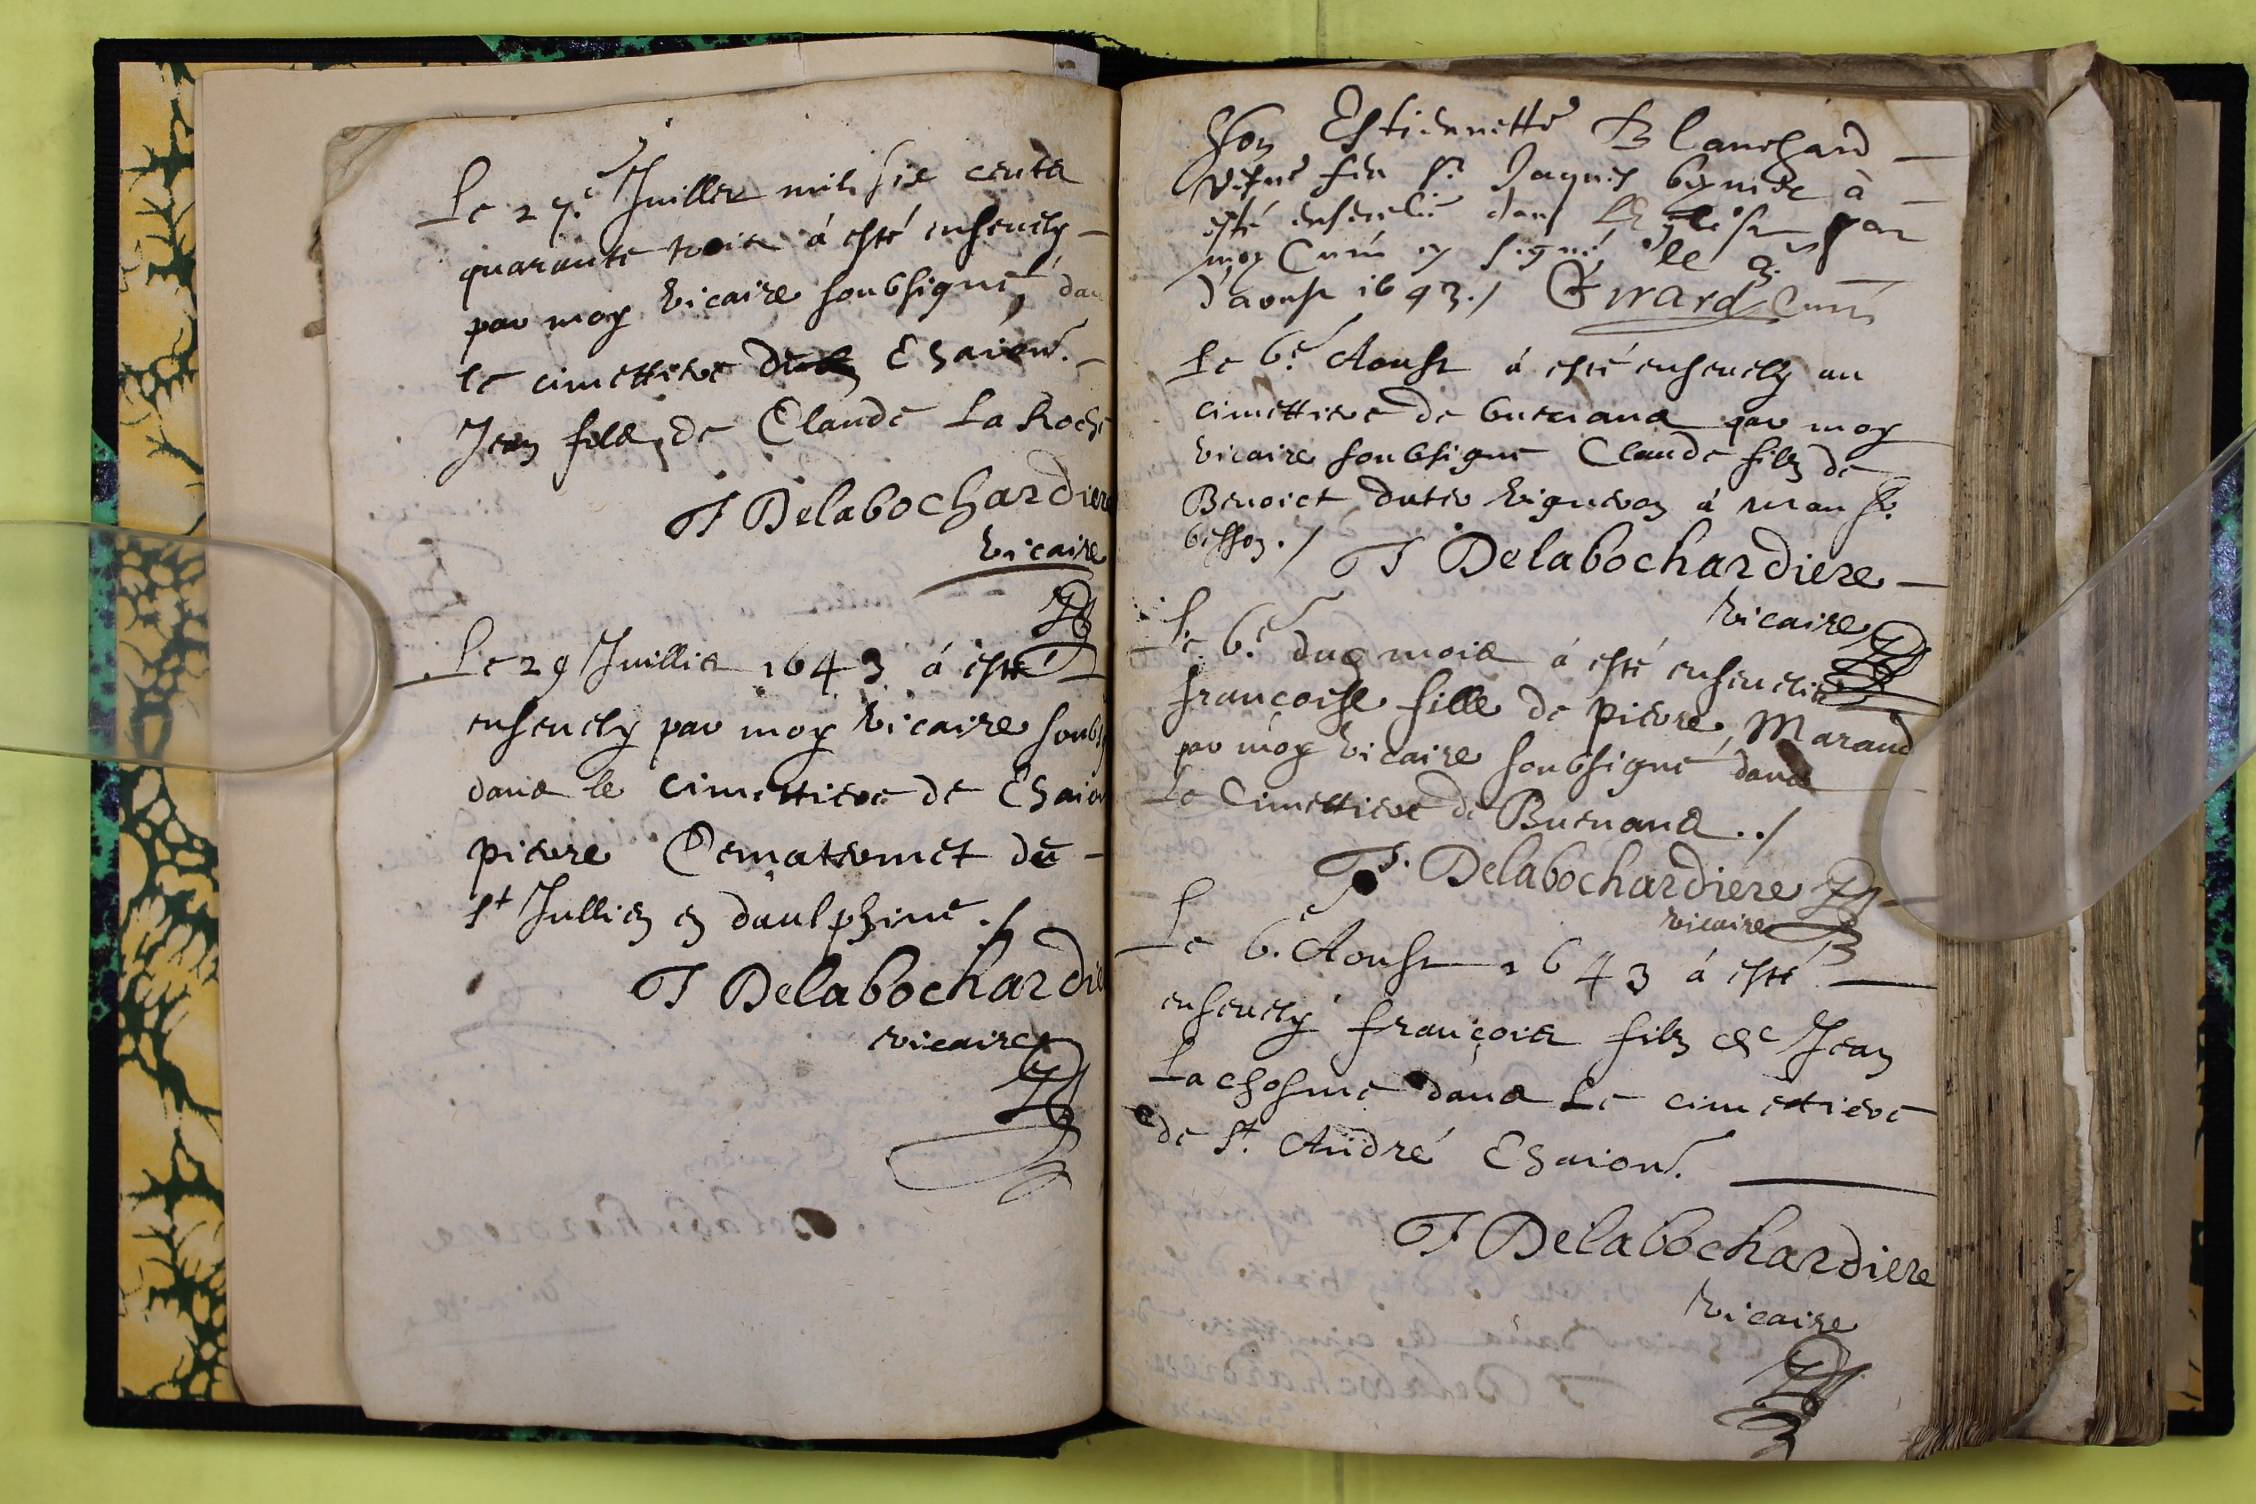 Le 27.e Juillet mil six cents
quarante trois à esté ensevely
par moy Vicaire soubsigné, dan
le cimettiere de Chaion.
Jean filz de Claude La Roche
T Delabochardiere
Vicaire
Le 29 Juillis 1643 à esté
ensevely par moy Vicaire soubs
dans le cimettiere de Chaion
pierre de
St Jullien en daulphine ./
T Delabochardie
Vicaire
hon Estiennette Blanchard
vefve feu Sr Jaques à
esté ensevelie dans par
moy Curé et signé, le 3.
d'aoust 1643 ./ Girard Curé
Le 6.e Aoust à esté ensevely au
cimettiere de par moy
Vicaire soubsigne Claude filz de
Benoict Vigneron à Sr
besson ./ T Delabochardiere
Vicaire
Le 6.e dud mois à esté ensevelie
francoise fille de pierre, Marand
par moy Vicaire soubsigné dans
Le Cimettiere de Buenans ../
T. Delabochardiere
Vicaire
Le 6. Aoust 1643 à esté
ensevely françois filz de Jean
Lachosme dans Le cimettiere
de St. André Chaion.
T Delabochardiere
Vicaire